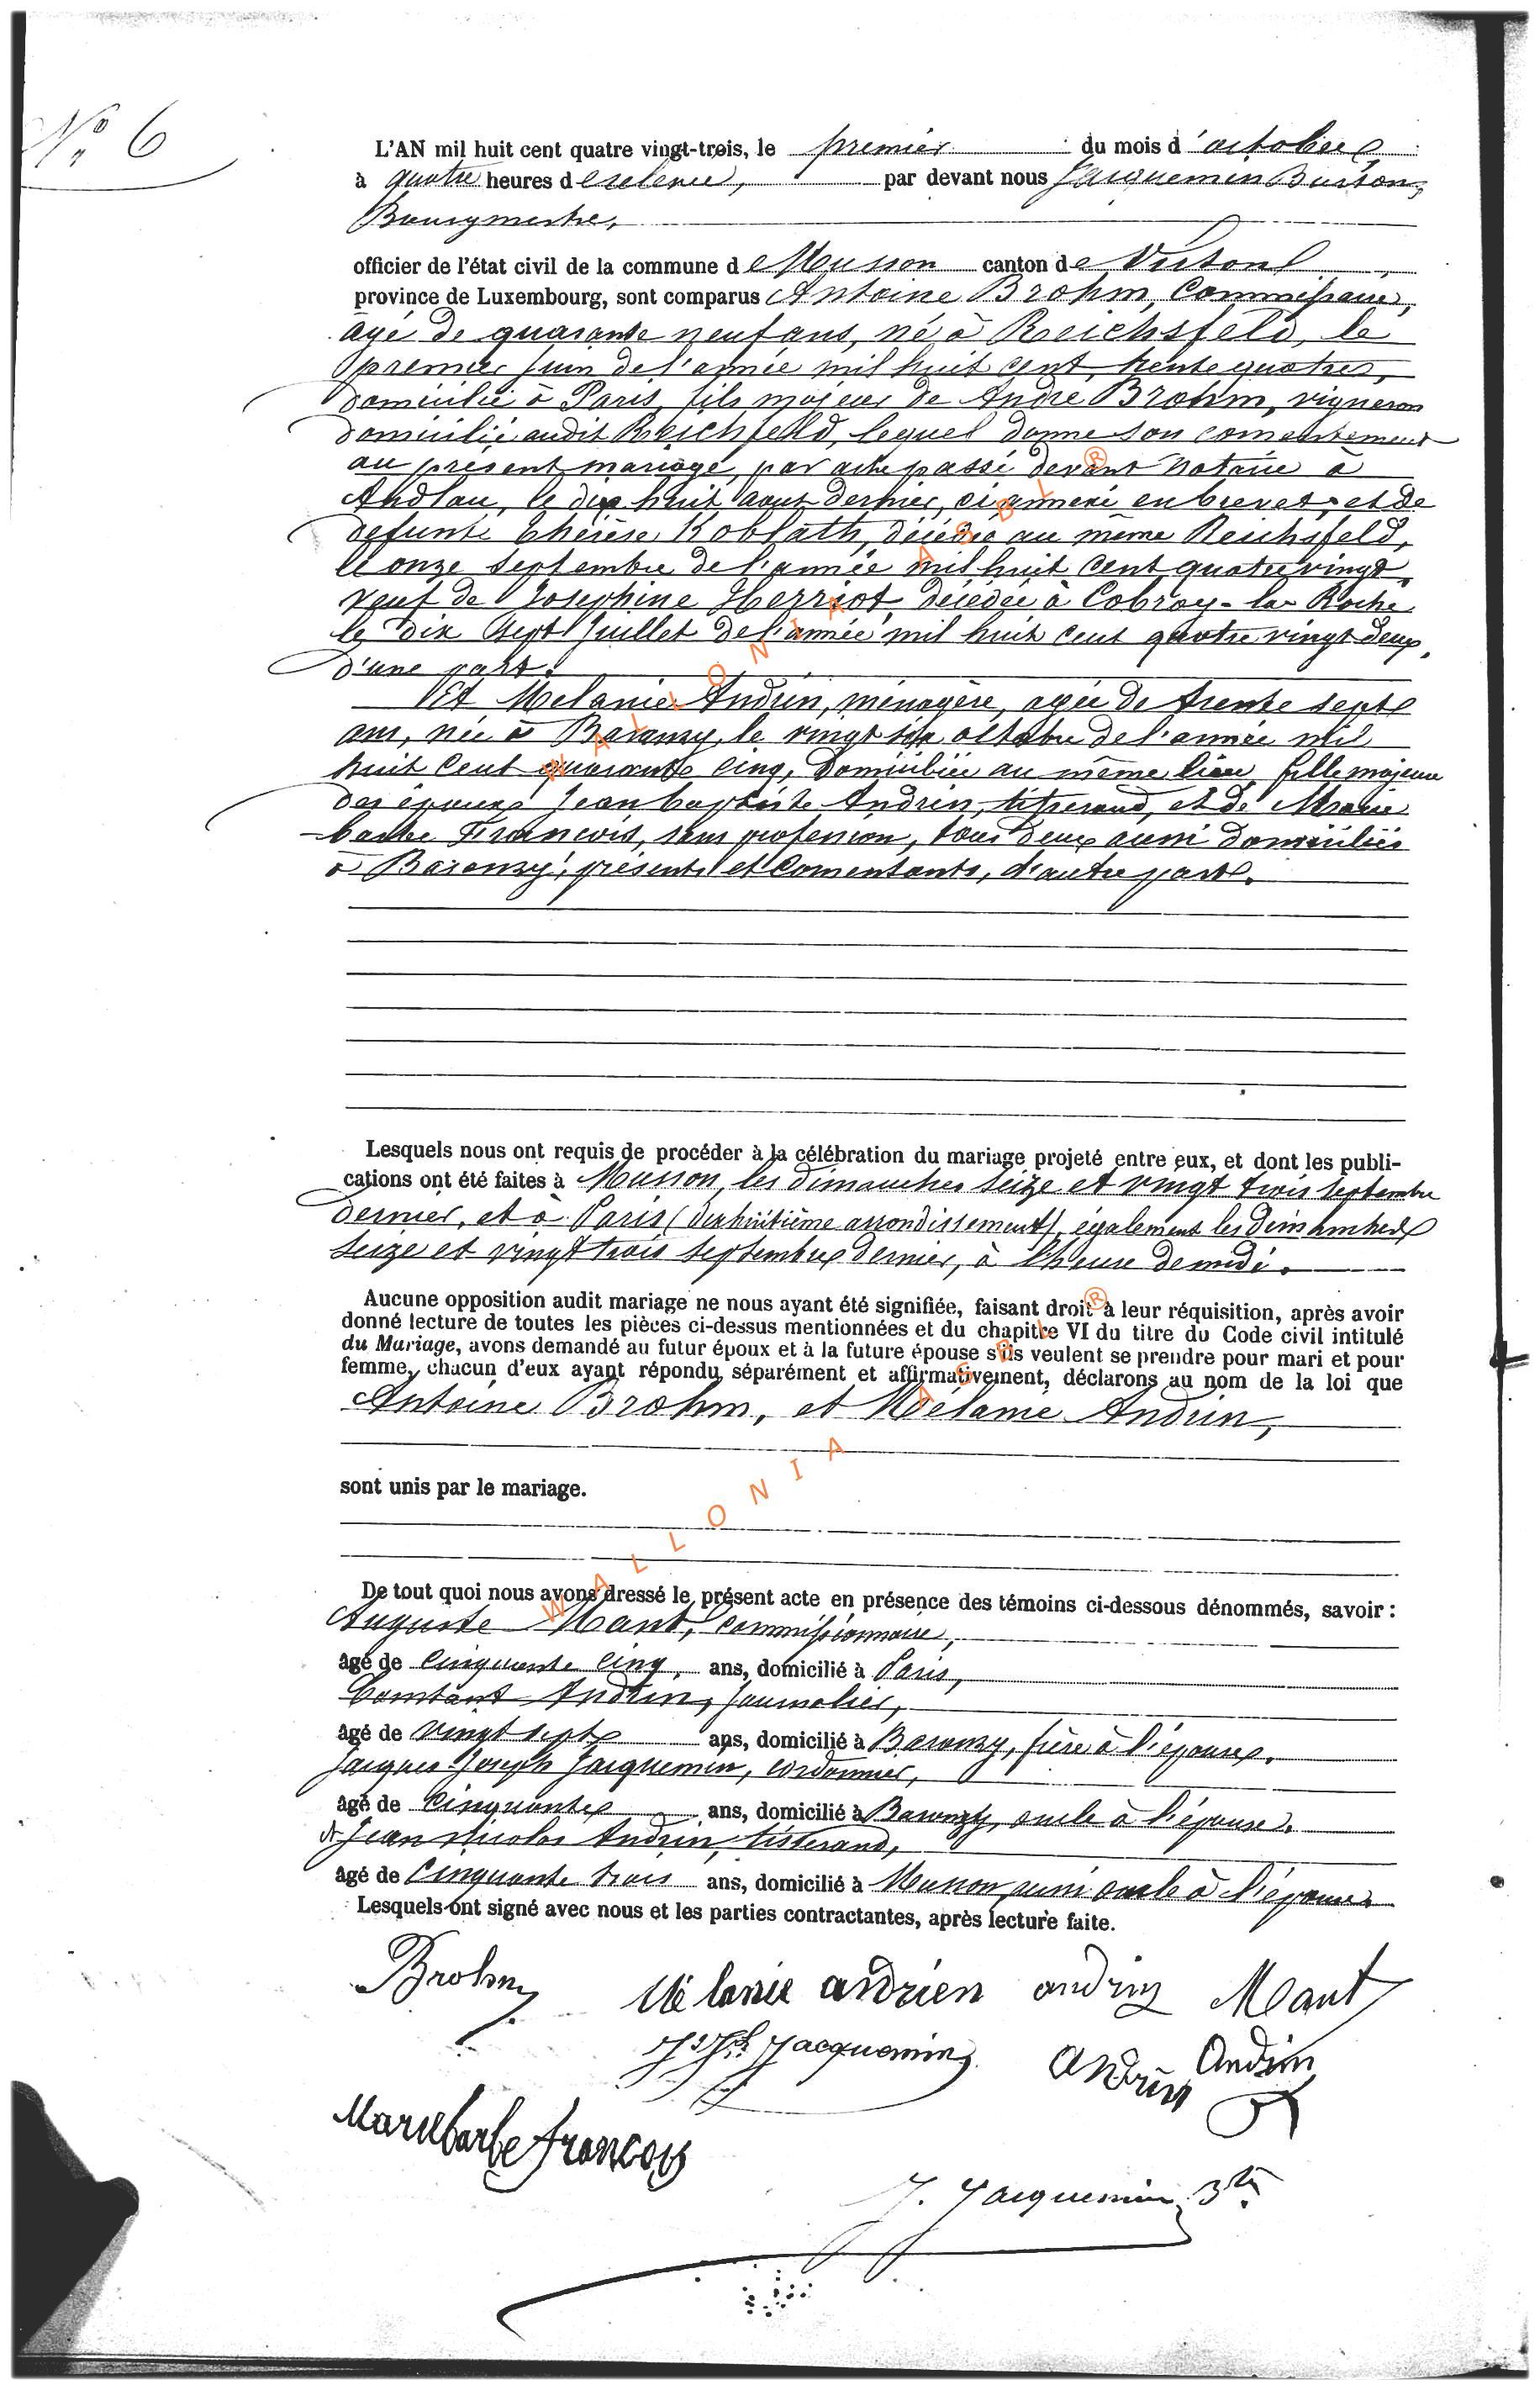 N° 6
L'AN mil huit cent quatre vingt-trois, le premier du mois d'octobre
à quatre heures de relevée, par devant nous Jacquemin Buison,
Bourgmestre,
officier de l'état civil de la commune de Musson canton de Virton
province de Luxembourg, sont comparus Antoine Brohm, Commissaire,
âgé de quarante neuf ans, né à Reichsfeld, le
premier juin de l'année mil huit cent trente quatre,
domicilié à Paris, fils majeur de André Brohm, vigneron
domicilié audit Reichsfeld, lequel donne son consentement
au présent mariage, par acte passé devant notaire à
Andlau, le dix huit aout dernier, ci annexé en brevet, et de
défunte Thérèse Koblath, décédée au même Reichsfeld,
le onze septembre de l'année mil huit cent quatre vingt,
veuf de Josephine Herriot, décédée à Cobroy-la-Roche
le dix sept Juillet de l'année mil huit cent quatre vingt deux,
d'une part.
Et Melanie Andrin, ménagère, agée de trente sept
ans, née à Baranzy, le vingt six octobre de l'année mil
huit cent quarante cinq, domiciliée au même lieu, fille majeure
des époux Jean baptiste Andrin, tisserand, et de Marie
barbe François, sans profession, tous deux aussi domiciliés
à Baranzy, présents et consentants, d'autre part.
Lesquels nous ont requis de procéder à la célébration du mariage projeté entre eux, et dont les publi-
cations ont été faites à Musson, les dimanches seize et vingt trois septembre
dernier, et à Paris (dixhuitième arrondissement), également les dimanches
seize et vingt trois septembre dernier, à l'heure de midi.
Aucune opposition audit mariage ne nous ayant été signifiée, faisant droit à leur réquisition, après avoir
donné lecture de toutes les pièces ci-dessus mentionnées et du chapitre VI du titre du Code civil intitulé
du Mariage, avons demandé au futur époux et à la future épouse s'ils veulent se prendre pour mari et pour
femme, chacun d'eux ayant répondu séparément et affirmativement, déclarons au nom de la loi que
Antoine Brohm, et Mélanie Andrin,
sont unis par le mariage.
De tout quoi nous avons dressé le présent acte en présence des témoins ci-dessous dénommés, savoir :
Auguste Mant, commissionnaire,
âgé de cinquante cinq, ans, domicilié à Paris,
Constant Andrin, journalier,
âgé de vingt sept ans, domicilié à Baranzy, frère à l'épouse,
Jacques Joseph Jacquemin, cordonnier,
âgé de cinquante ans, domicilié à Baranzy, oncle à l'épouse,
et Jean Nicolas Andrin, tisserand,
âgé de cinquante trois ans, domicilié à Musson, aussi oncle à l'épouse.
Lesquels ont signé avec nous et les parties contractantes, après lecture faite.
Brohm Mélanie andrien andrin Mant
J Jph Jacquemin andrin Andrin
Marie barbe françois
J. Jacquemin Btn
WALLONIA ASBL ®
WALLONIA ASBL ®